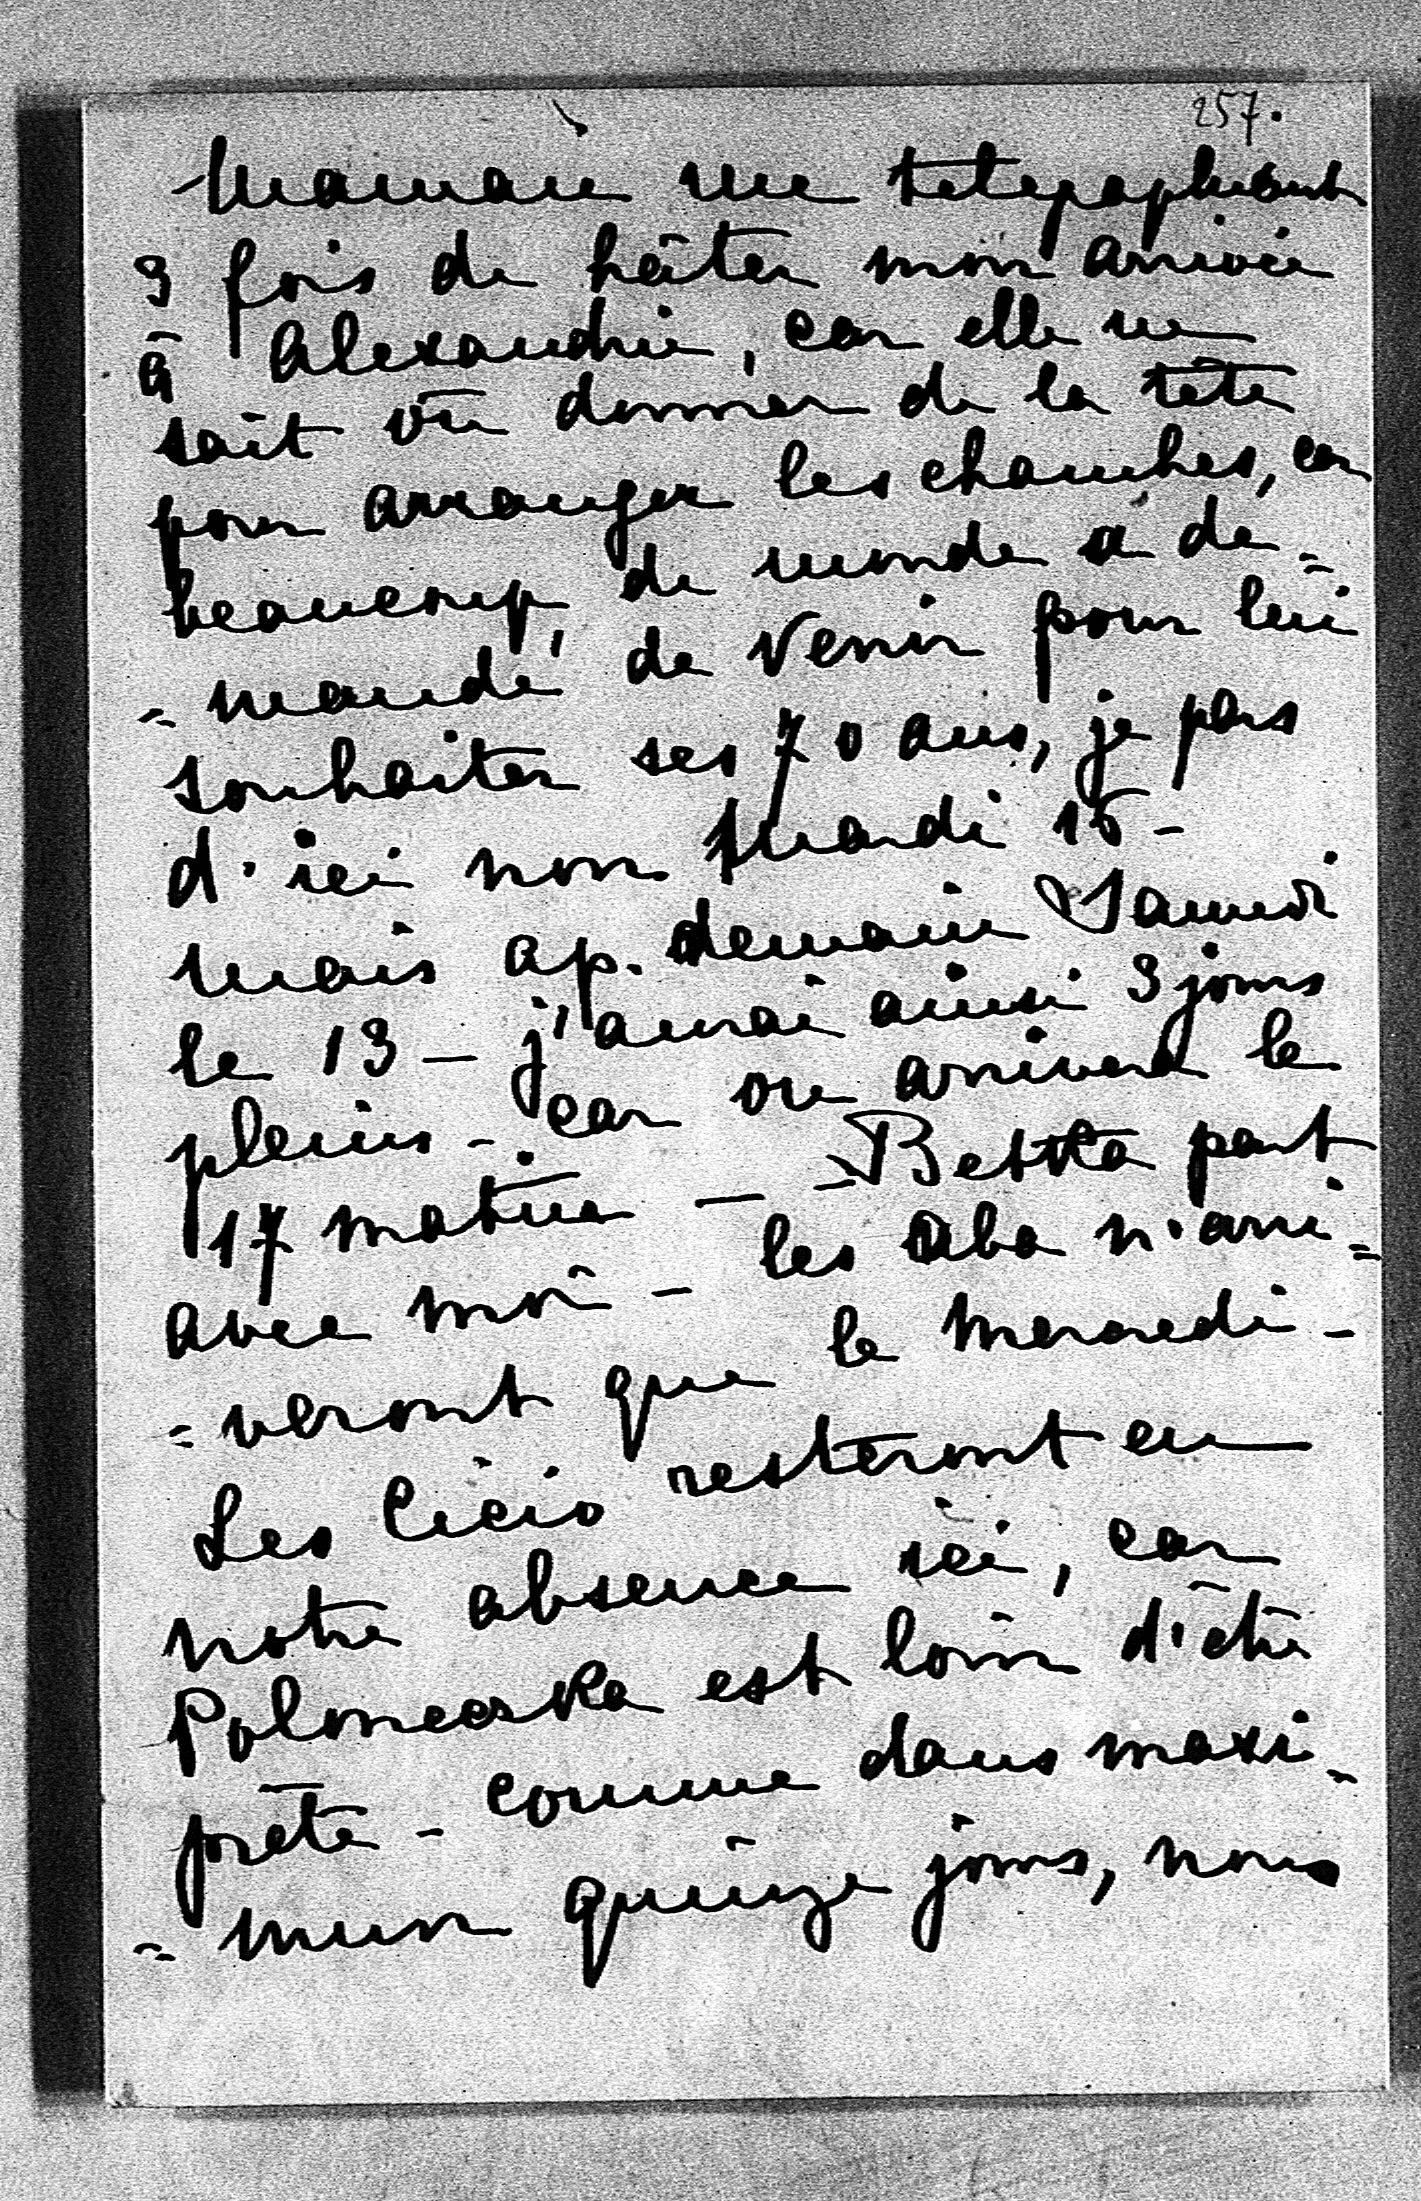 257.
Maman me telegraphiant
3 fois de hâter mon arrivée
à Alexandrie, car elle ne
sait où donner de la tête
pour arranger les chambres, car
beaucoup de monde a de=
=mandé de venir pour lui
souhaiter ses 70 ans, je pars
d'ici non Mardi 16 -
mais ap. demain Samedi
le 13 - j'aurai ainsi 3 jours
pleins - car on arrivera le
17 matin - - Bettka part
avec moi - les Aba n'arri=
=veront que le Mercredi -
Les Cicio resteront en
notre absence ici, car
Poloneczka est loin d'être
prête - comme dans maxi=
=mum quinze jours, nous